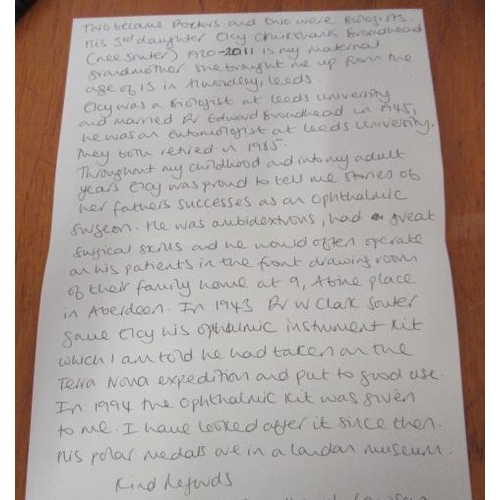 Two became Doctors and two were Biologists.
His 3rd daughter Elcy Cruikshank Broadhead
(nee Souter) 1920-2011 is my maternal
Grandmother she brought me up from the
age of 15 in Alwoodley, Leeds.
Elcy was a Biologist at Leeds University
and married Dr Edward Broadhead in 1945,
he was an Entomologist at Leeds University.
They both retired in 1985.
Throughout my childhood and into my adult
years Elcy was proud to tell me stories of
her fathers successes as an ophthalmic
surgeon. He was ambidextrous, had great
surgical skills and he would often operate
on his patients in the front drawing room
of their family home at 9, Albyn place
in Aberdeen. In 1943 Dr W Clark Souter
gave Elcy his ophthalmic instrument kit
which I am told he had taken on the
Terra Nova expedition and put to good use.
In 1994 the ophthalmic kit was given
to me. I have looked after it since then.
His polar medals are in a London museum.
Kind Regards